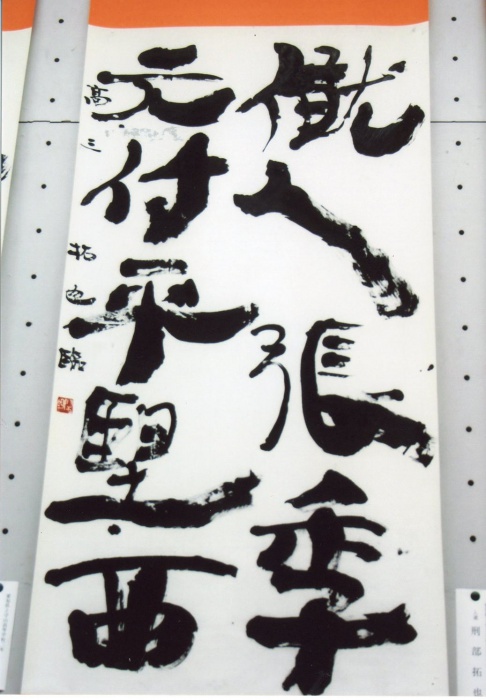 僦人張季
元付平里西
高三
拓也臨
刑部拓也